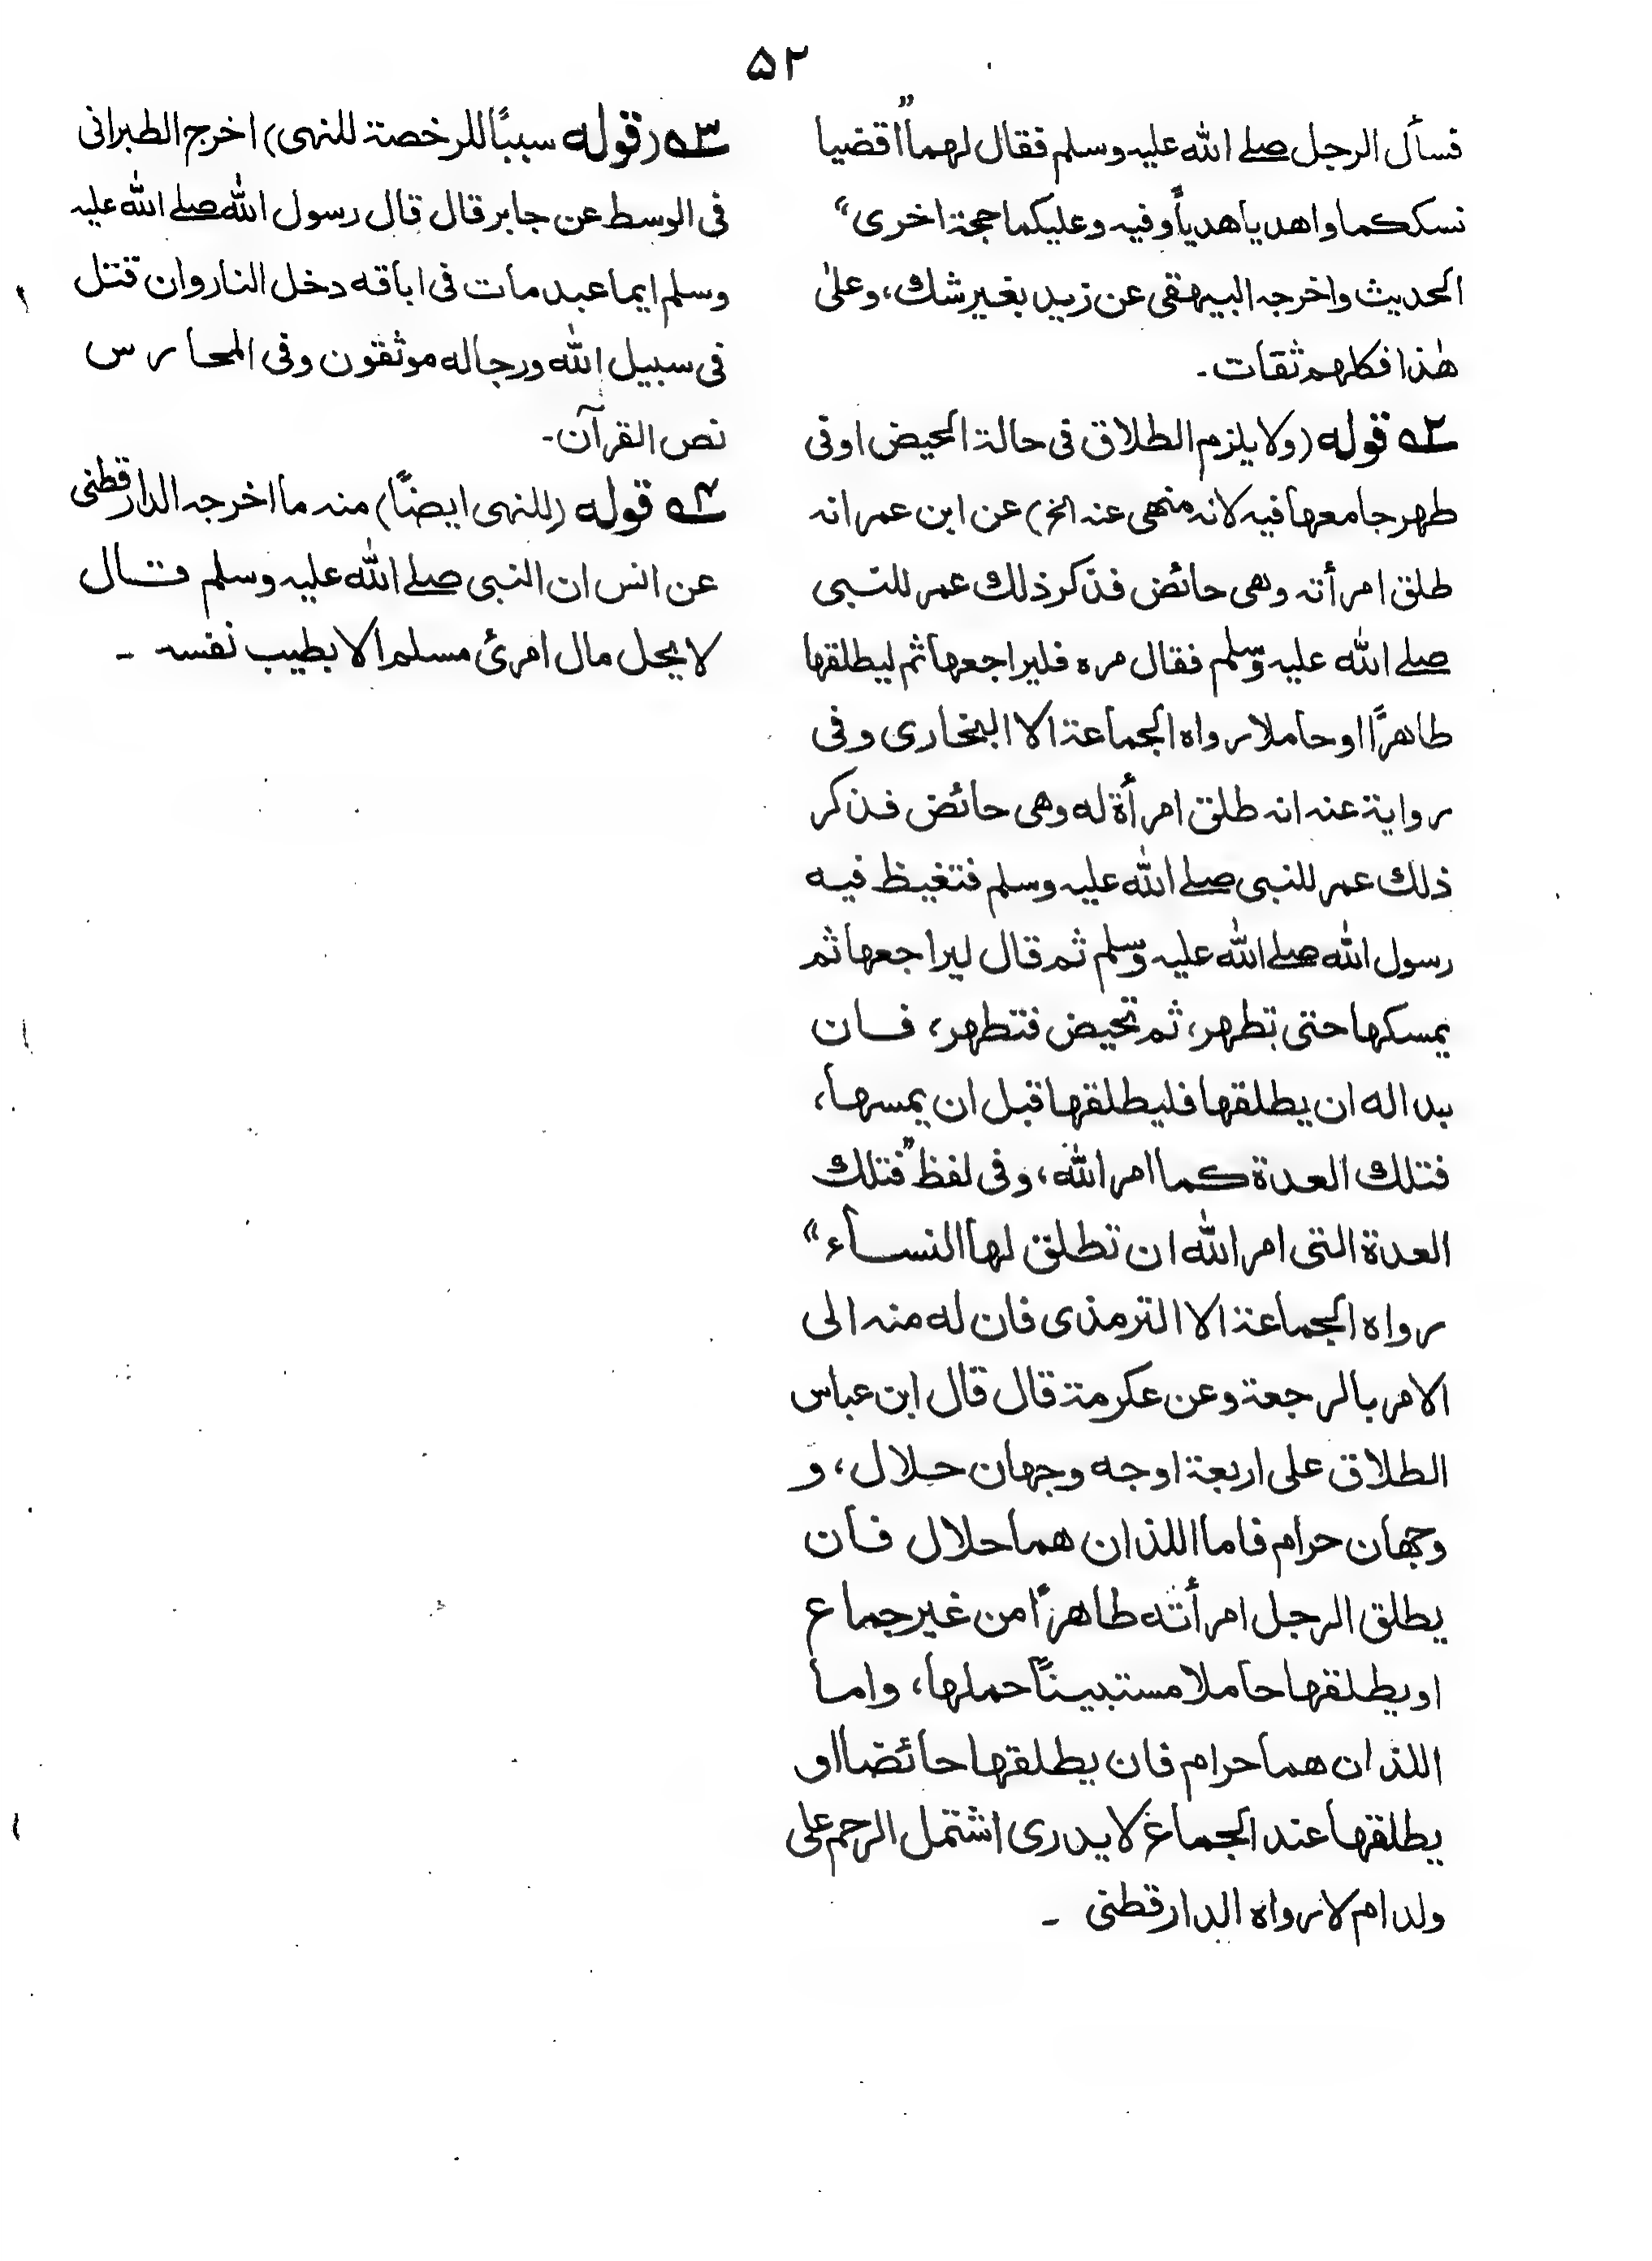 ۵۲
فسأل الرجل صلے اللہ علیہ وسلم فقال لهما "اقضيا
نسككما واهديا هدياً وفيه وعليكما حجة اخرى"
الحديث واخرجه البيهقى عن زيد بغير شك، وعلىٰ
هٰذا فكلهم ثقات۔
۵۲ قوله (ولا يلزم الطلاق فى حالة الحيض اوفى
طهر جامعها فيه لانه منهى عنه الخ) عن ابن عمر انه
طلق امرأته وهى حائض فذكر ذلك عمر للنبى
صلے اللہ علیہ وسلم فقال مره فليراجعها ثم ليطلقها
طاهرًا اوحاملا رواه الجماعة الا البخارى وفى
رواية عنه انه طلق امرأة له وهى حائض فذكر
ذلك عمر للنبى صلے اللہ علیہ وسلم فتغيظ فيه
رسول اللہ صلے اللہ علیہ وسلم ثم قال ليراجعها ثم
يمسكها حتى تطهر، ثم تحيض فتطهر، فان
بدا له ان يطلقها فليطلقها قبل ان يمسها،
فتلك العدة كما امر اللہ، وفى لفظ "فتلك
العدة التى امر اللہ ان تطلق لها النساء"
رواه الجماعة الا الترمذى فان له منه الى
الامر بالرجعة وعن عكرمة قال قال ابن عباس
الطلاق على اربعة اوجه وجهان حلال، و
وجهان حرام فاما اللذان هما حلال فان
يطلق الرجل امرأته طاهرًا من غير جماع
اويطلقها حاملا مستبينًا حملها، واما
اللذان هما حرام فان يطلقها حائضا او
يطلقها عند الجماع لا يدرى اشتمل الرحم على
ولد ام لا رواه الدارقطنى ۔
۵۳ (قوله سببًا للرخصة للنهى) اخرج الطبرانى
فى الوسط عن جابر قال قال رسول اللہ صلے اللہ علیہ
وسلم ايما عبد مات فى اباقه دخل النار وان قتل
فى سبيل اللہ ورجاله موثقون وفى المحارس
نص القرآن۔
۵۴ قوله (للنهى ايضًا) منه ما اخرجه الدارقطنى
عن انس ان النبى صلے اللہ علیہ وسلم قال
لا يحل مال امرئ مسلم الا بطيب نفسه ۔